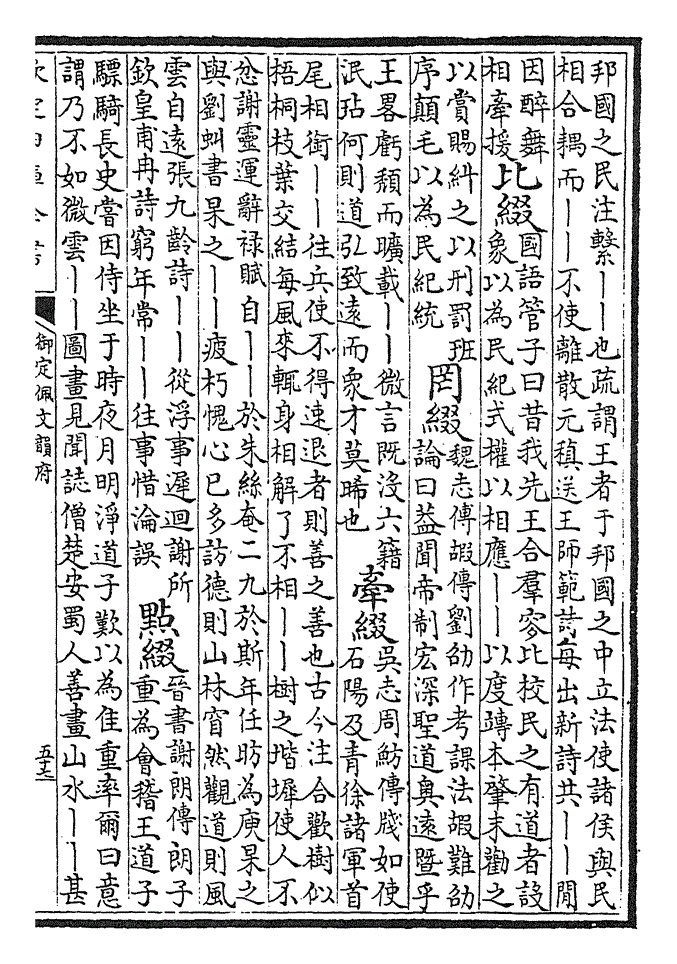 邦國之民注繫丨丨也疏謂王者于邦國之中立法使諸侯與民
相合耦而丨丨不使離散元稹送王師範詩每出新詩共丨丨閒
因醉舞
相牽援
比綴
國語管子曰昔我先王合羣叟比校民之有道者設
象以為民紀式權以相應丨丨以度竱本肇末勸之
以賞賜糾之以刑罰班
序顛毛以為民紀統
罔綴
魏志傅嘏傳劉劭作考課法嘏難劭
論曰葢聞帝制宏深聖道奥遠暨乎
王畧虧頽而曠載丨丨微言既沒六籍
泯玷何則道弘致遠而衆才莫晞也
牽綴
吳志周魴傳牋如使
石陽及青徐諸軍首
尾相銜丨丨往兵使不得速退者則善之善也古今注合歡樹似
梧桐枝葉交結每風來輒身相解了不相丨丨樹之堦墀使人不
忿謝靈運辭祿賦自丨丨於朱絲奄二九於斯年任昉為庾杲之
與劉虯書杲之丨丨疲朽愧心已多訪德則山林窅然觀道則風
雲自遠張九齡詩丨丨從浮事遲迴謝所
欽皇甫冉詩窮年常丨丨往事惜淪誤
點綴
晉書謝朗傳朗子
重為會稽王道子
驃騎長史嘗因侍坐于時夜月明淨道子歎以為佳重率爾曰意
謂乃不如微雲丨丨圖畫見聞誌僧楚安蜀人善畫山水丨丨甚
欽定四庫全書
御定佩文韻府